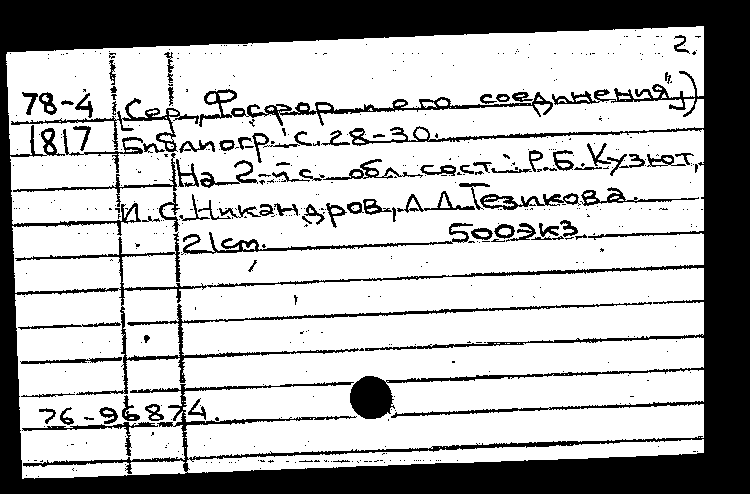 2.
78-4 Сер. „Фосфор и его соединения")
1817 Библиогр. с. 28-30.
На 2-й с. обл. сост.: Р.Б. Кузют,
И. С. Никандров, Л.Л. Тезикова.
21 cm. 500 экз
76-96874.